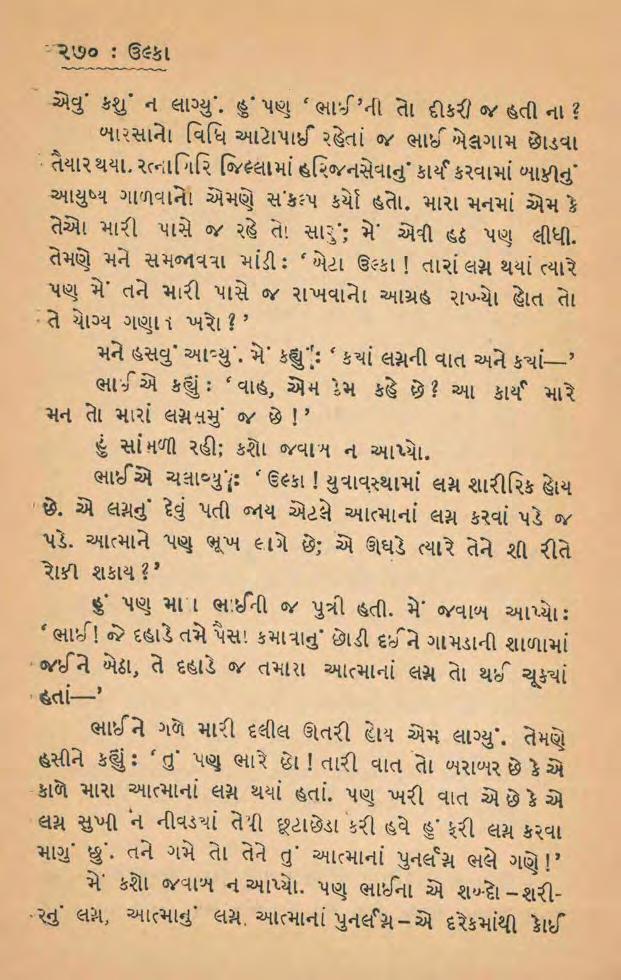 ૨૭૦ : ઉલ્કા
એવું કશું ન લાગ્યું. હું પણ ‘ ભાઈ’ની તો દીકરી જ હતી ના ?
બારસાનો વિધિ આટોપાઈ રહેતાં જ ભાઈ બેલગામ છોડવા
તૈયાર થયા. રત્નાગિરિ જિલ્લામાં હરિજનસેવાનું કાર્ય કરવામાં બાકીનું
આયુષ્ય ગાળવાનો એમણે સંકલ્પ કર્યો હતો. મારા મનમાં એમ કે
તેઓ મારી પાસે જ રહે તો સારું; મેં એવી હઠ પણ લીધી.
તેમણે મને સમજાવવા માંડી : ‘ બેટા ઉલ્કા ! તારાં લગ્ન થયાં ત્યારે
પણ મેં તને મારી પાસે જ રાખવાનો આગ્રહ રાખ્યો હોત તો
તે યોગ્ય ગણાત ખરો ? ’
મને હસવું આવ્યું. મેં કહ્યું : ‘ કયાં લગ્નની વાત અને કયાં—’
ભાઈએ કહ્યું : ‘ વાહ, એમ કેમ કહે છે ? આ કાર્ય મારે
મન તો મારાં લગ્નસમું જ છે ! ’
હું સાંભળી રહી; કશો જવાબ ન આપ્યો.
ભાઈએ ચલાવ્યું : ‘ ઉલ્કા ! યુવાવસ્થામાં લગ્ન શારીરિક હોય
છે. એ લગ્નનું દેવું પતી જાય એટલે આત્માનાં લગ્ન કરવાં પડે જ
પડે. આત્માને પણ ભૂખ લાગે છે; એ ઊઘડે ત્યારે તેને શી રીતે
રોકી શકાય ? ’
હું પણ મારા ભાઈની જ પુત્રી હતી. મેં જવાબ આપ્યો :
‘ ભાઈ ! જે દહાડે તમે પૈસા કમાવાનું છોડી દઈને ગામડાની શાળામાં
જઈને બેઠા, તે દહાડે જ તમારા આત્માનાં લગ્ન તો થઈ ચૂક્યાં
હતાં—’
ભાઈને ગળે મારી દલીલ ઊતરી હોય એમ લાગ્યું. તેમણે
હસીને કહ્યું : ‘ તું પણ ભારે છો ! તારી વાત તો બરાબર છે કે એ
કાળે મારા આત્માનાં લગ્ન થયાં હતાં. પણ ખરી વાત એ છે કે એ
લગ્ન સુખી ન નીવડયાં તેથી છૂટાછેડા કરી હવે હું ફરી લગ્ન કરવા
માગું છું. તને ગમે તો તેને તું આત્માનાં પુનર્લગ્ન ભલે ગણે ! ’
મેં કશો જવાબ ન આપ્યો. પણ ભાઈના એ શબ્દો – શરી-
રનું લગ્ન, આત્માનું લગ્ન, આત્માનાં પુનર્લગ્ન – એ દરેકમાંથી કોઈ